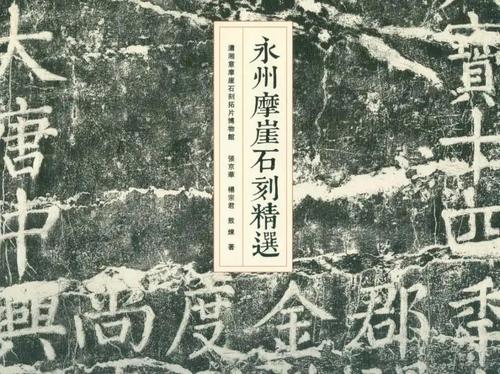 永州摩崖石刻精選
瀟湘意摩崖石刻拓片博物館 張京華 楊宗君 敖煉 著
寶十四季
郡
金
度
尚
大唐中興